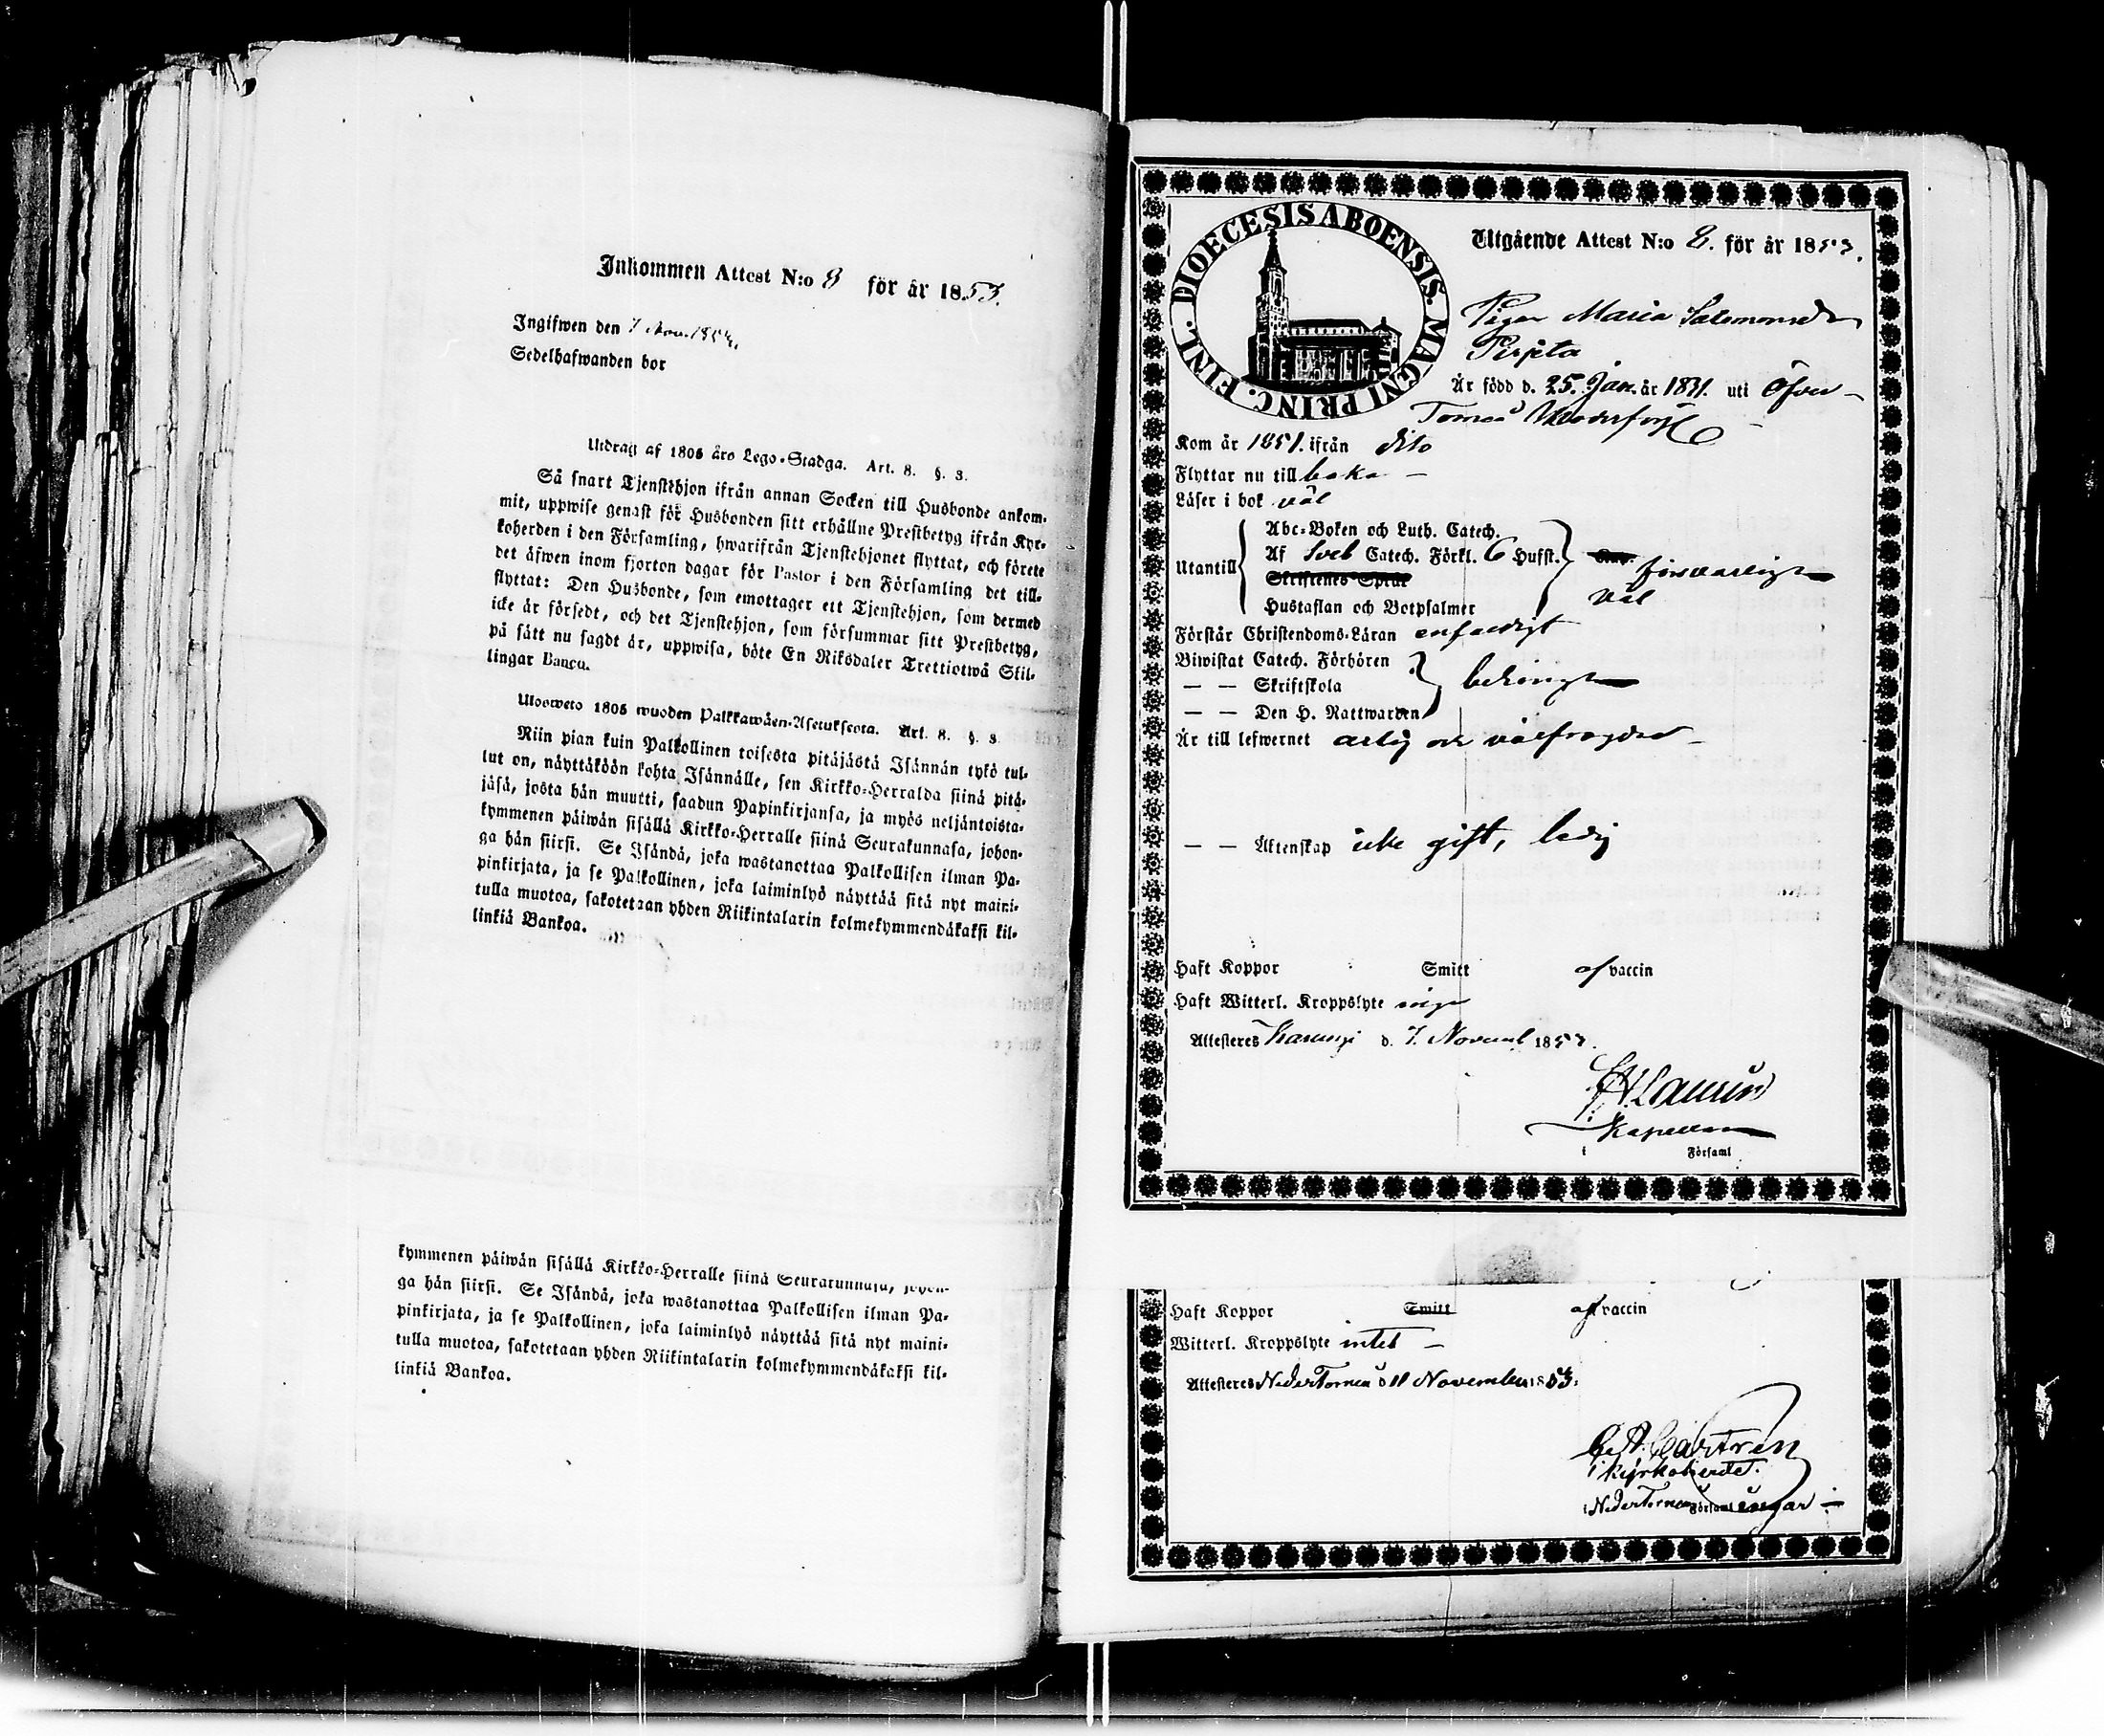 Inkommen Attest N:o 8 för år 1853.
Ingifwen den 7 Nov. 1853.
Sedelhafwanden bor
Utdrag af 1805 års Lego-Stadga. Art. 8. §. 3.
Så snart Tjenstehjon ifrån annan Socken till Husbonde ankom-
mit, uppwise genast för Husbonden sitt erhållne Prestbetyg ifrån Kyr-
koherden i den Församling, hwarifrån Tjenstehjonet flyttat, och förete
det äfwen inom fjorton dagar för Pastor i den Församling det till-
flyttat: Den Husbonde, som emottager ett Tjenstehjon, som dermed
icke är försedt, och det Tjenstehjon, som försummar sitt Prestbetyg,
på sätt nu sagdt är, uppwisa, böte En Riksdaler Trettiotwå Skil-
lingar Banco.
Ulosweto 1805 wuoden Palkkawäen-Asetuksesta. Art. 8. §. 3
Niin pian kuin Palkollinen toisesta pitäjästä Isännän tykö tul-
lut on, näyttäköön kohta Isännälle, sen Kirkko-Herralda siinä pitä-
jäsä, josta hän muutti, saadun Papinkirjansa, ja myös neljäntoista-
kymmenen päiwän sisällä Kirkko-Herralle siinä Seurakunnasa, johon-
ga hän siirsi. Se Isändä, joka wastanottaa Palkollisen ilman Pa-
pinkirjata, ja se Palkollinen, joka laiminlyö näyttää sitä nyt maini-
tulla muotoa, sakotetaan yhden Riikintalarin kolmekymmendäkaksi kil-
linkiä Bankoa.
kymmenen päiwän sisällä Kirkko-Herralle siinä Seurakunnasa, johon-
ga hän siirsi. Se Isändä, joka wastanottaa Palkollisen ilman Pa-
pinkirjata, ja se Palkollinen, joka laiminlyö näyttää sitä nyt maini-
tulla muotoa, sakotetaan yhden Riikintalarin kolmekymmendäkaksi kil-
linkiä Bankoa.
DIOECESIS ABOENSIS. MAGNI PRINC. FINL.
Utgående Attest N:o 8. för år 1853.
Pigan Maria Salomonsdr
Pirjeta
Är född d. 25. Jan. år 1831. uti Öfver-
Torneå
Kom år 1851. ifrån dito
Flyttar nu till baka –
Läser i bok väl
Utantill
Abc-Boken och Luth. Catech.
Af Sveb Catech. Förkl. 6 Hufst.
Skriftenes Språk
försvarligt
Hustaflan och Botpsalmer
väl
Förstår Christendoms-Läran enfaldigt
Biwistat Catech. Förhören
— — Skriftskola
— — Den H. Nattwarden
behörigt
Är till lefwernet ärlig och välfrägdad –
— — Äktenskap icke gift, ledig
Haft Koppor Smitt af vaccin
Haft Witterl. Kroppslyte inga
Attesteras Karungi d. 7. Novemb 1853.
Kapellan
i Församl
Haft Koppor Smitt af vaccin
Witterl. Kroppslyte intet –
Attesteras NederTorneå d 11 November 1853.
Castrén
Kyrkoherde.
i NederTorneå Församl